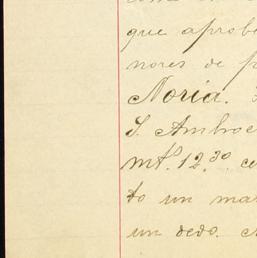 que aprobe
nores de p
Noria.
S. Ambroc
mt.º 12.30 ce
to un mar
un dedo. C